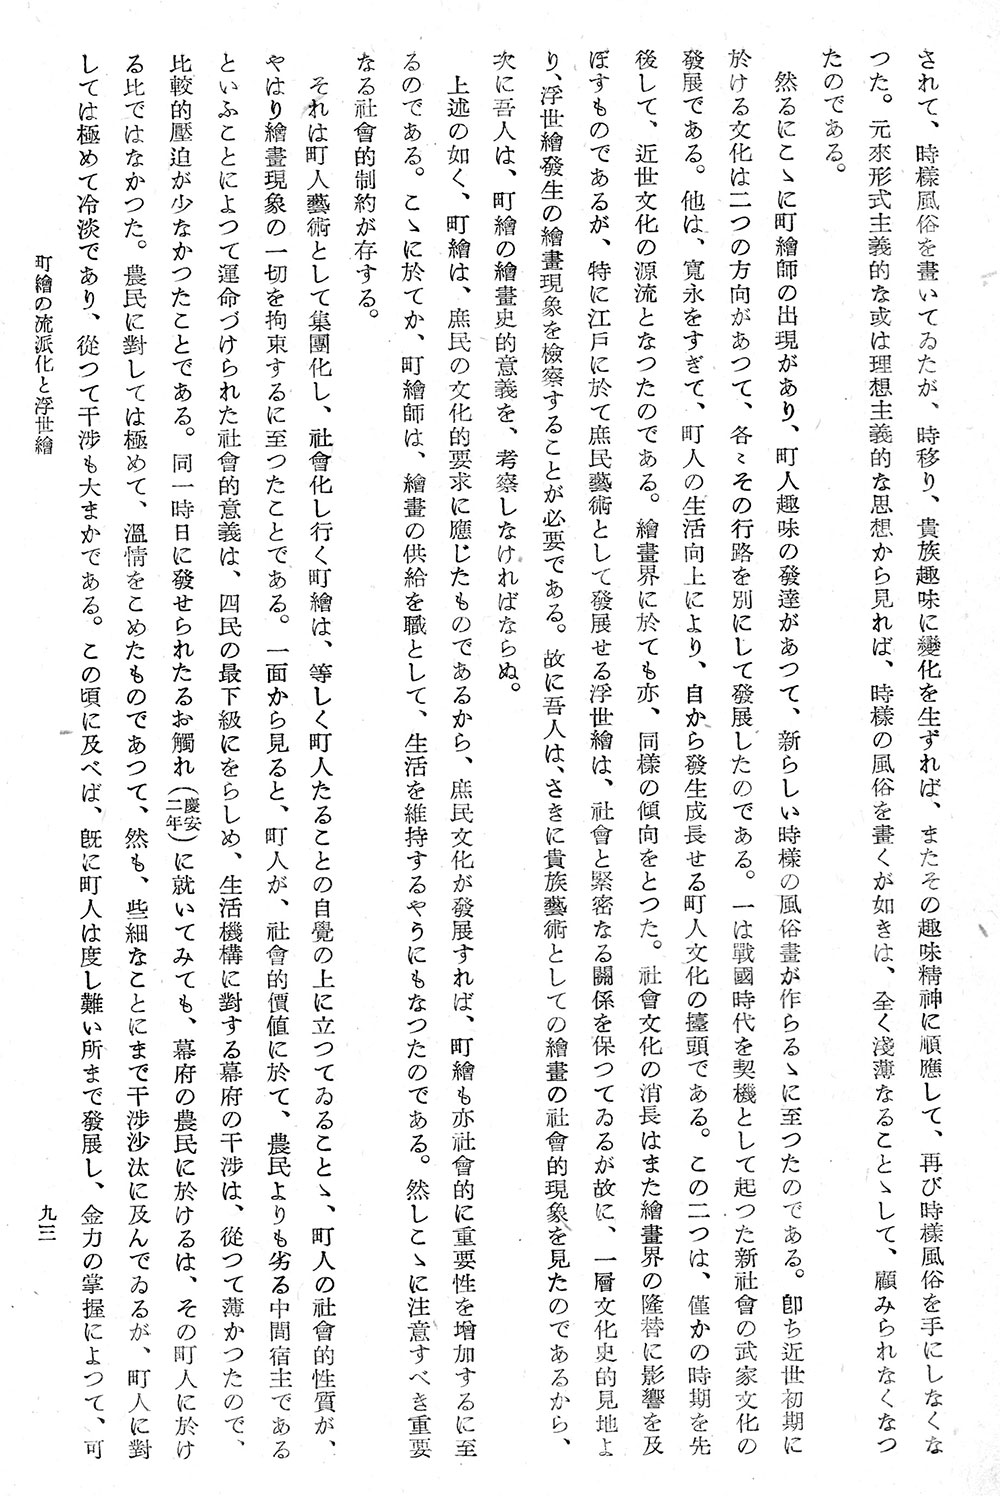 されて、時樣風俗を畫いてゐたが、時移り、貴族趣味に變化を生ずれば、またその趣味精神に順應して、再び時樣風俗を手にしなくな
つた。元來形式主義的な或は理想主義的な思想から見れば、時樣の風俗を畫くが如きは、全く淺薄なることゝして、顧みられなくなつ
たのである。
然るにこゝに町繪師の出現があり、町人趣味の發達があつて、新らしい時樣の風俗畫が作らるゝに至つたのである。卽ち近世初期に
於ける文化は二つの方向があつて、各〻その行路を別にして發展したのである。一は戰國時代を契機として起つた新社會の武家文化の
發展である。他は、寬永をすぎて、町人の生活向上により、自から發生成長せる町人文化の擡頭である。この二つは、僅かの時期を先
後して、近世文化の源流となつたのである。繪畫界に於ても亦、同樣の傾向をとつた。社會文化の消長はまた繪畫界の隆替に影響を及
ぼすものであるが、特に江戸に於て庶民藝術として發展せる浮世繪は、社會と緊密なる關係を保つてゐるが故に、一層文化史的見地よ
り、浮世繪發生の繪畫現象を檢察することが必要である。故に吾人は、さきに貴族藝術としての繪畫の社會的現象を見たのであるから、
次に吾人は、町繪の繪畫史的意義を、考察しなければならぬ。
上述の如く、町繪は、庶民の文化的要求に應じたものであるから、庶民文化が發展すれば、町繪も亦社會的に重要性を增加するに至
るのである。こゝに於てか、町繪師は、繪畫の供給を職として、生活を維持するやうにもなつたのである。然しこゝに注意すべき重要
なる社會的制約が存する。
それは町人藝術として集團化し、社會化し行く町繪は、等しく町人たることの自覺の上に立つてゐることゝ、町人の社會的性質が、
やはり繪畫現象の一切を拘束するに至つたことである。一面から見ると、町人が、社會的價値に於て、農民よりも劣る中間宿主である
といふことによつて運命づけられた社會的意義は、四民の最下級にをらしめ、生活機構に對する幕府の干涉は、從つて薄かつたので、
比較的壓迫が少なかつたことである。同一時日に發せられたるお觸れ(慶安二年)に就いてみても、幕府の農民に於けるは、その町人に於け
る比ではなかつた。農民に對しては極めて、溫情をこめたものであつて、然も、些細なことにまで干涉沙汰に及んでゐるが、町人に對
しては極めて冷淡であり、從つて干涉も大まかである。この頃に及べば、旣に町人は度し難い所まで發展し、金力の掌握によつて、可
町繪の流派化と浮世繪
九三